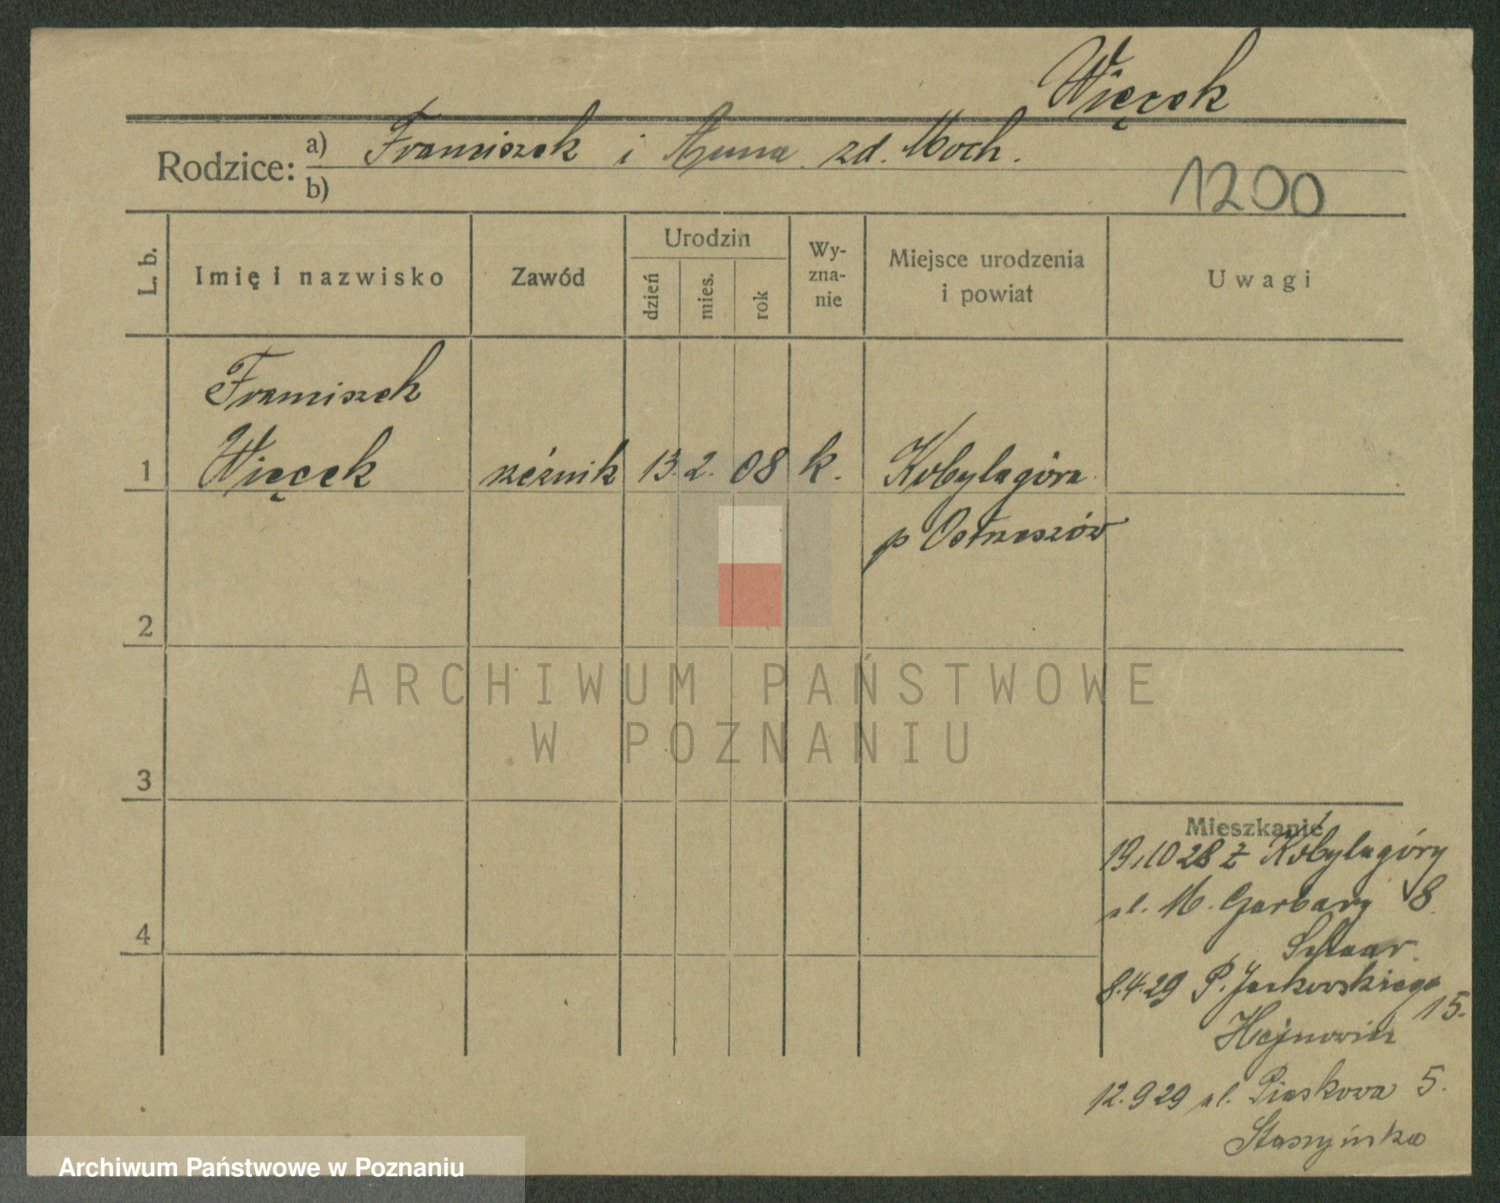 Więcek
Rodzice: a) Franciszek i Anna zd. Moch.
b)
1200
L. b.
Imię i nazwisko
Zawód
Urodzin
dzień
mies.
rok
Wy-
zna-
nie
Miejsce urodzenia
i powiat
Uwagi
Franciszek
1 Więcek rzeźnik 13. 2. 08 k. Kobylagóra
p Ostrzeszów
2
ARCHIWUM PAŃSTWOWE
W POZNANIU
3
Mieszkanie
19.10 28 z Kobylagóry
ul. M. Garbary 8.
4
8.4.29 P. Jackowskiego
15.
Hejnowicz
12.9 29 ul. Piaskowa 5.
Staszyńska
Archiwum Państwowe w Poznaniu